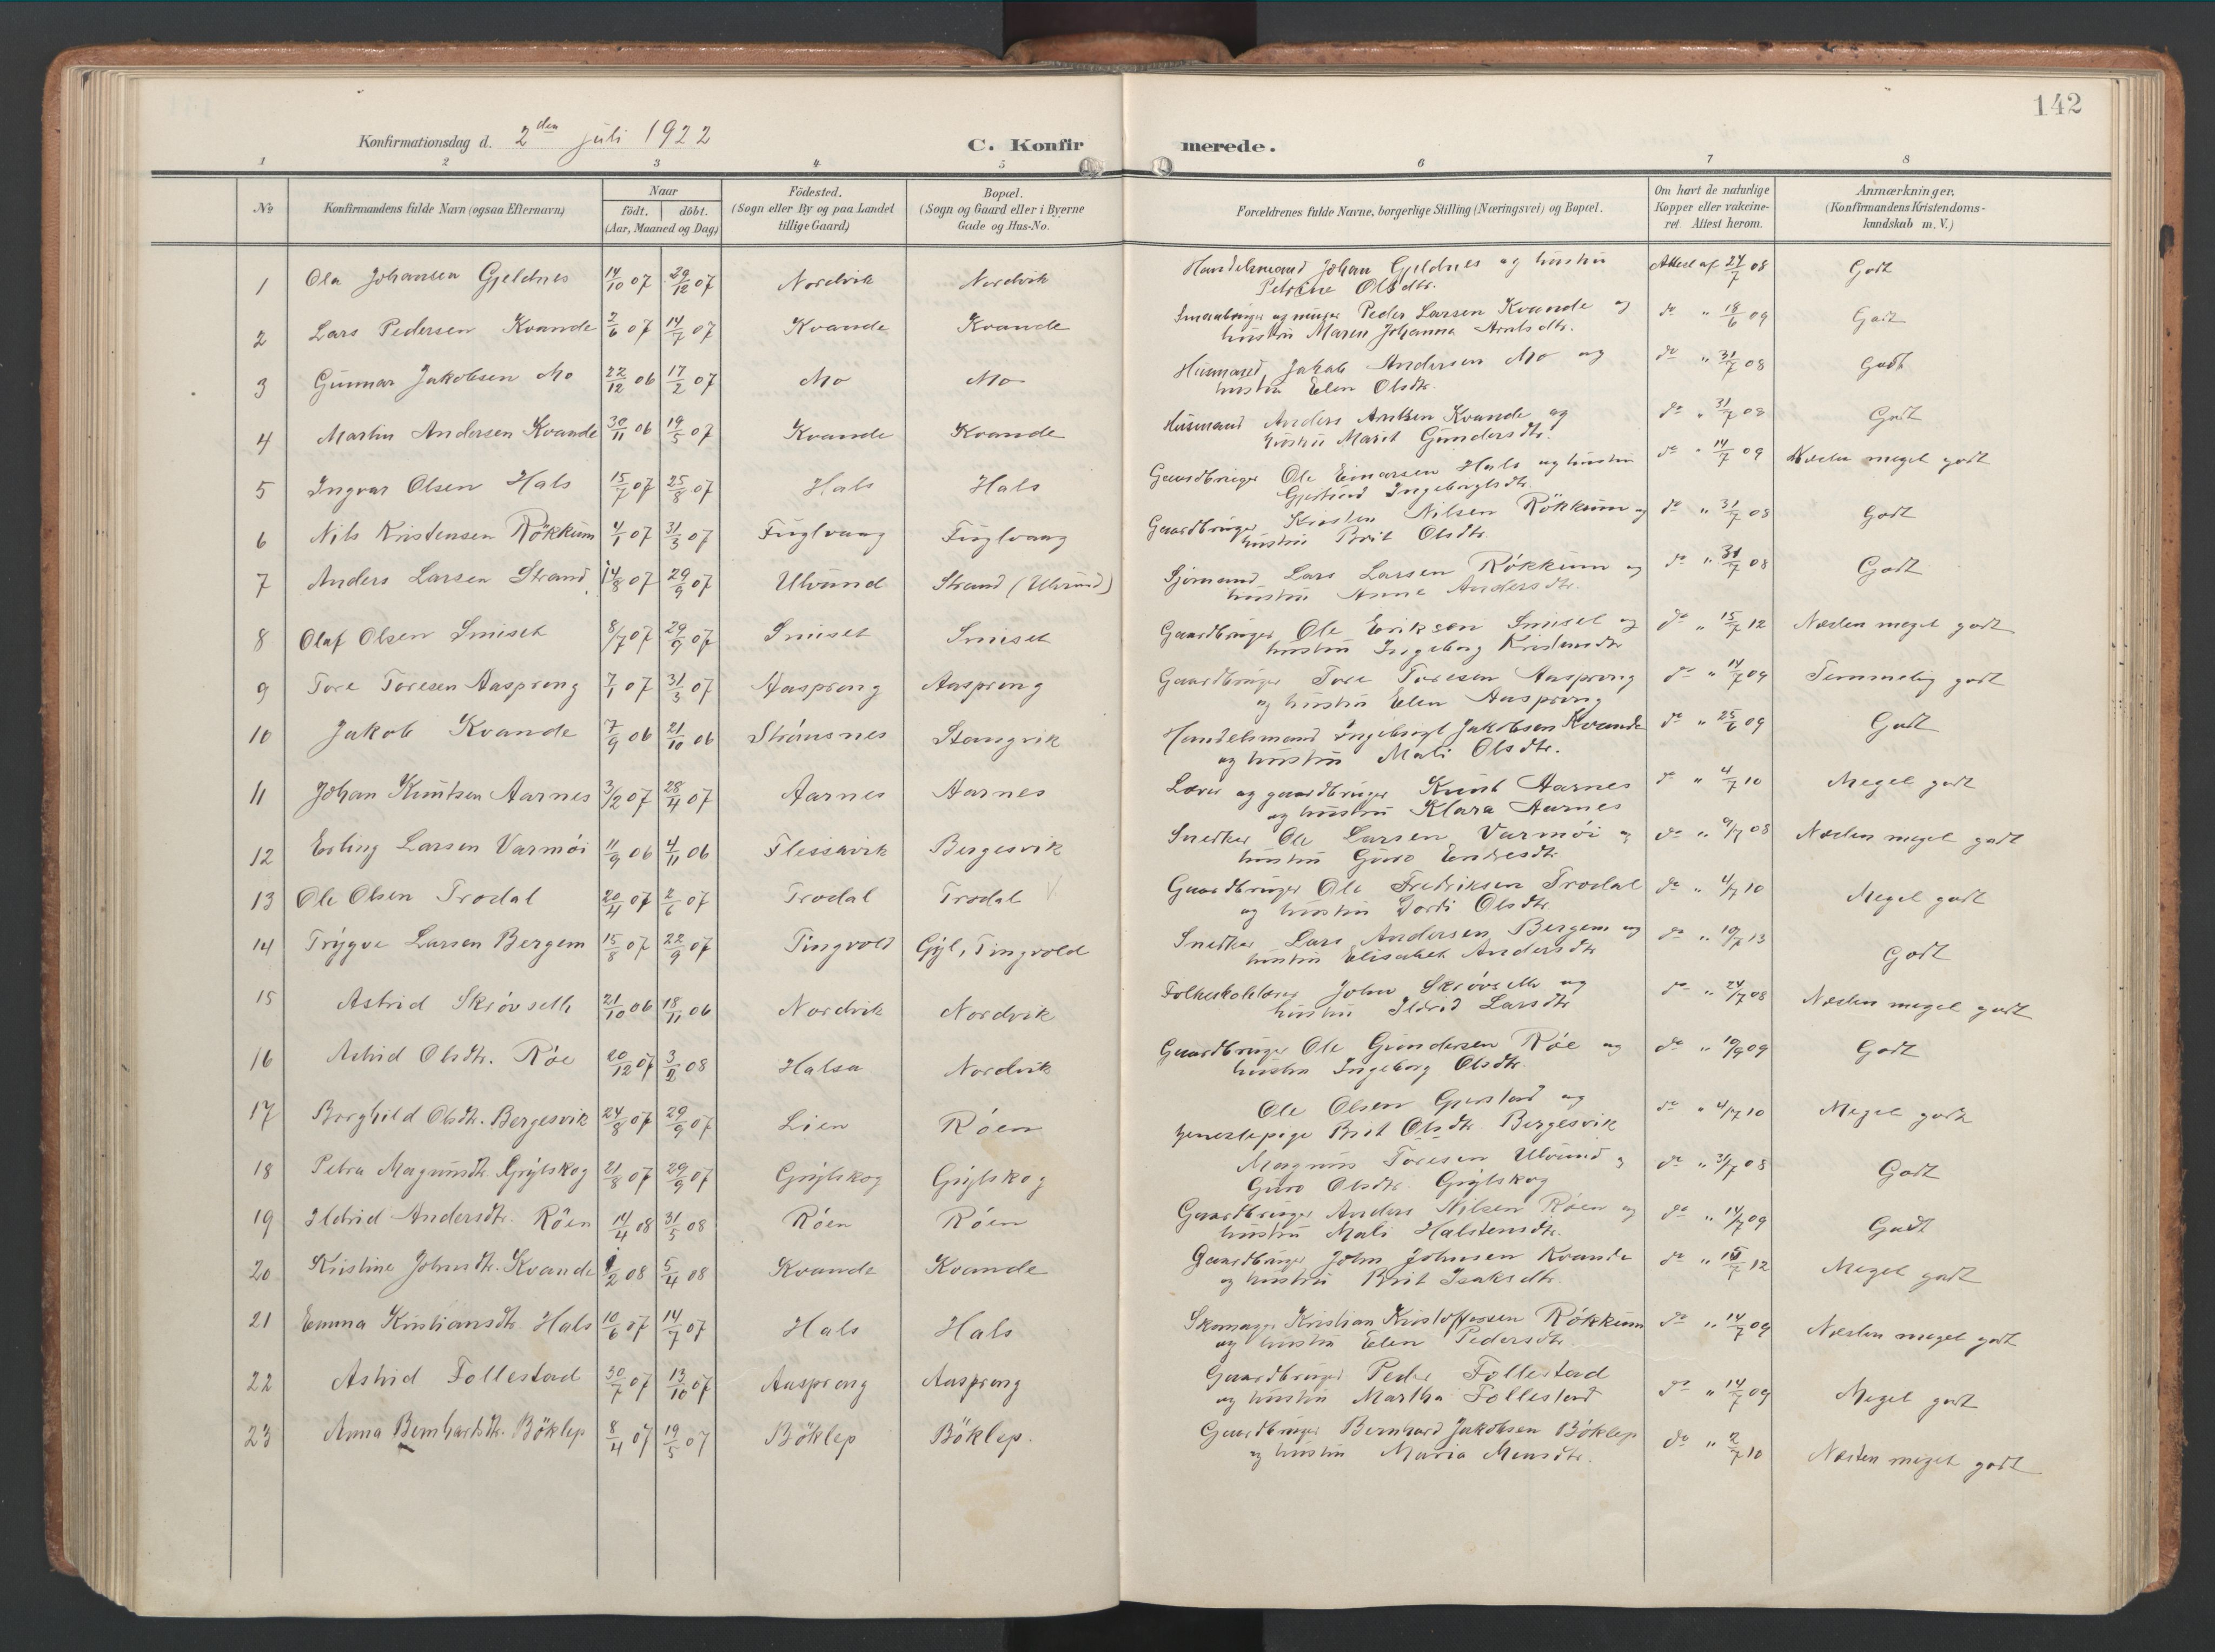 142
Konfirmationsdag d. 2den juli 1922 C. Konfirmerede.
1 2 3 4 5 6 7 8
No Konfirmandens fulde Navn (ogsaa Efternavn) Naar födt. döbt. (Aar, Maaned og Dag) Födested. (Sogn eller By og paa Landet tillige Gaard) Bopæl. (Sogn og Gaard eller i Byerne Gade og Hus-No. Forældrenes fulde Navne, borgerlige Stilling (Næringsvei) og Bopæl. Om havt de naturlige Kopper eller vakcineret. Attest herom. Anmærkninger. (Konfirmandens Kristendomskundskab m. V.)
1 Ola Johansen Gjeldnes 14/10 07 29/12 07 Nordvik Nordvik Handelsmand Johan Gjeldnes og hustru Attest af 24/7 08 Godt
Petrine Olsdtr.
2 Lars Pedersen Kvande 2/6 07 14/7 07 Kvande Kvande Smaabruger og murer Peder Larsen Kvande og do " 18/6 09 Godt
hustru Maren Johanna Arntsdtr.
3 Gunnar Jakobsen Mo 22/12 06 17/2 07 Mo Mo Husmand Jakob Andersen Mo og do " 31/7 08 Godt
hustru Elen Olsdtr.
4 Martin Andersen Kvande 30/11 06 19/5 07 Kvande Kvande Husmand Anders Arntsen Kvande og do " 31/7 08 Godt
hustru Marit Gundersdtr.
5 Ingvar Olsen Hals 15/7 07 25/8 07 Hals Hals Gaardbruger Ole Einarsen Hals og hustru do " 14/7 09 Næsten meget godt
Gjertrud Ingebrigtsdtr.
6 Nils Kristensen Rökkum 4/1 07 31/3 07 Fuglvaag Fuglvaag Gaardbruger Kristen Nilsen Rökkum og do " 31/7 08 Godt
hustru Brit Olsdtr.
7 Anders Larsen Strand 14/8 07 29/9 07 Ulvund Strand (Ulvund) Sjömand Lars Larsen Rökkum og do " 31/7 08 Godt
hustru Anne Andersdtr.
8 Olaf Olsen Smiset 8/7 07 29/9 07 Smiset Smiset Gaardbruger Ole Eriksen Smiset og do " 15/7 12 Næsten meget godt
hustru Ingeborg Kristensdtr
9 Tore Toresen Aasprong 7/1 07 31/3 07 Aasprong Aasprong Gaardbruger Tore Toresen Aasprong do " 14/7 09 Temmelig godt
og hustru Elen Aasprong
10 Jakob Kvande 7/9 06 21/10 06 Strömsnes Stangvik Handelsmand Ingebrigt Jakobsen Kvande do " 25/6 09 Godt
og hustru Mali Olsdtr.
11 Johan Knutsen Aarnes 3/2 07 28/4 07 Aarnes Aarnes Lærer og gaardbruger Knut Aarnes do " 4/7 10 Meget godt
og hustru Klara Aarnes
12 Erling Larsen Varmöi 11/9 06 4/11 06 Flessavik Bergesvik Snedker Ole Larsen Varmöi og do " 9/7 08 Næsten meget godt
hustru Guro Endresdtr
13 Ole Olsen Trodal 20/4 07 2/6 07 Trodal Trodal Gaardbruger Ole Fredriksen Trodal do " 4/7 10 Meget godt
og hustru Dordi Olsdtr
14 Trygve Larsen Bergem 15/8 07 22/9 07 Tingvold Gyl, Tingvold Snedker Lars Andersen Bergem og do " 10/7 13 Godt
hustru Elisabet Andersdtr
15 Astrid Skrövseth 21/10 06 18/11 06 Nordvik Nordvik Folkeskolelærer John Skrövseth og do " 24/7 08 Næsten meget godt
hustru Ildrid Larsdtr
16 Astrid Olsdtr. Röe 20/12 07 3/2 08 Halsa Nordvik Gaardbruger Ole Gundersen Röe og do " 10/9 09 Godt
hustru Ingeborg Olsdtr.
17 Borghild Olsdtr. Bergesvik 24/8 07 29/9 07 Lien Röen Ole Olsen Gjerstad og do " 4/7 10 Meget godt
tjenestepige Brit Olsdtr Bergesvik
18 Petra Magnusdtr. Grytskog 21/8 07 29/9 07 Grytskog Grytskog Magnus Toresen Ulvund og do " 31/7 08 Godt
Guro Olsdtr. Grytskog
19 Ildrid Andersdtr. Röen 14/4 08 31/5 08 Röen Röen Gaardbruger Anders Nilsen Röen og do " 14/7 09 Godt
hustru Mali Halstensdtr.
20 Kristine Johnsdtr. Kvande /2 08 5/4 08 Kvande Kvande Gaardbruger John Johnsen Kvande do " 15/7 12 Meget godt
og hustru Brit Isaksdtr.
21 Emma Kristiansdtr Hals 10/6 07 14/7 07 Hals Hals Skomager Kristian Kristoffersen Rökkum do " 14/7 09 Næsten meget godt
og hustru Elen Pedersdtr.
22 Astrid Follestad 30/7 07 13/10 07 Aasprong Aasprong Gaardbruger Peder Follestad do " 14/7 09 Meget godt
og hustru Martha Follestad
23 Anna Bernhardsdtr. Böklep 8/4 07 19/5 07 Böklep Böklep. Gaardbruger Bernhard Jakobsen Böklep do " 2/7 10 Næsten meget godt
og hustru Maria Monsdtr.